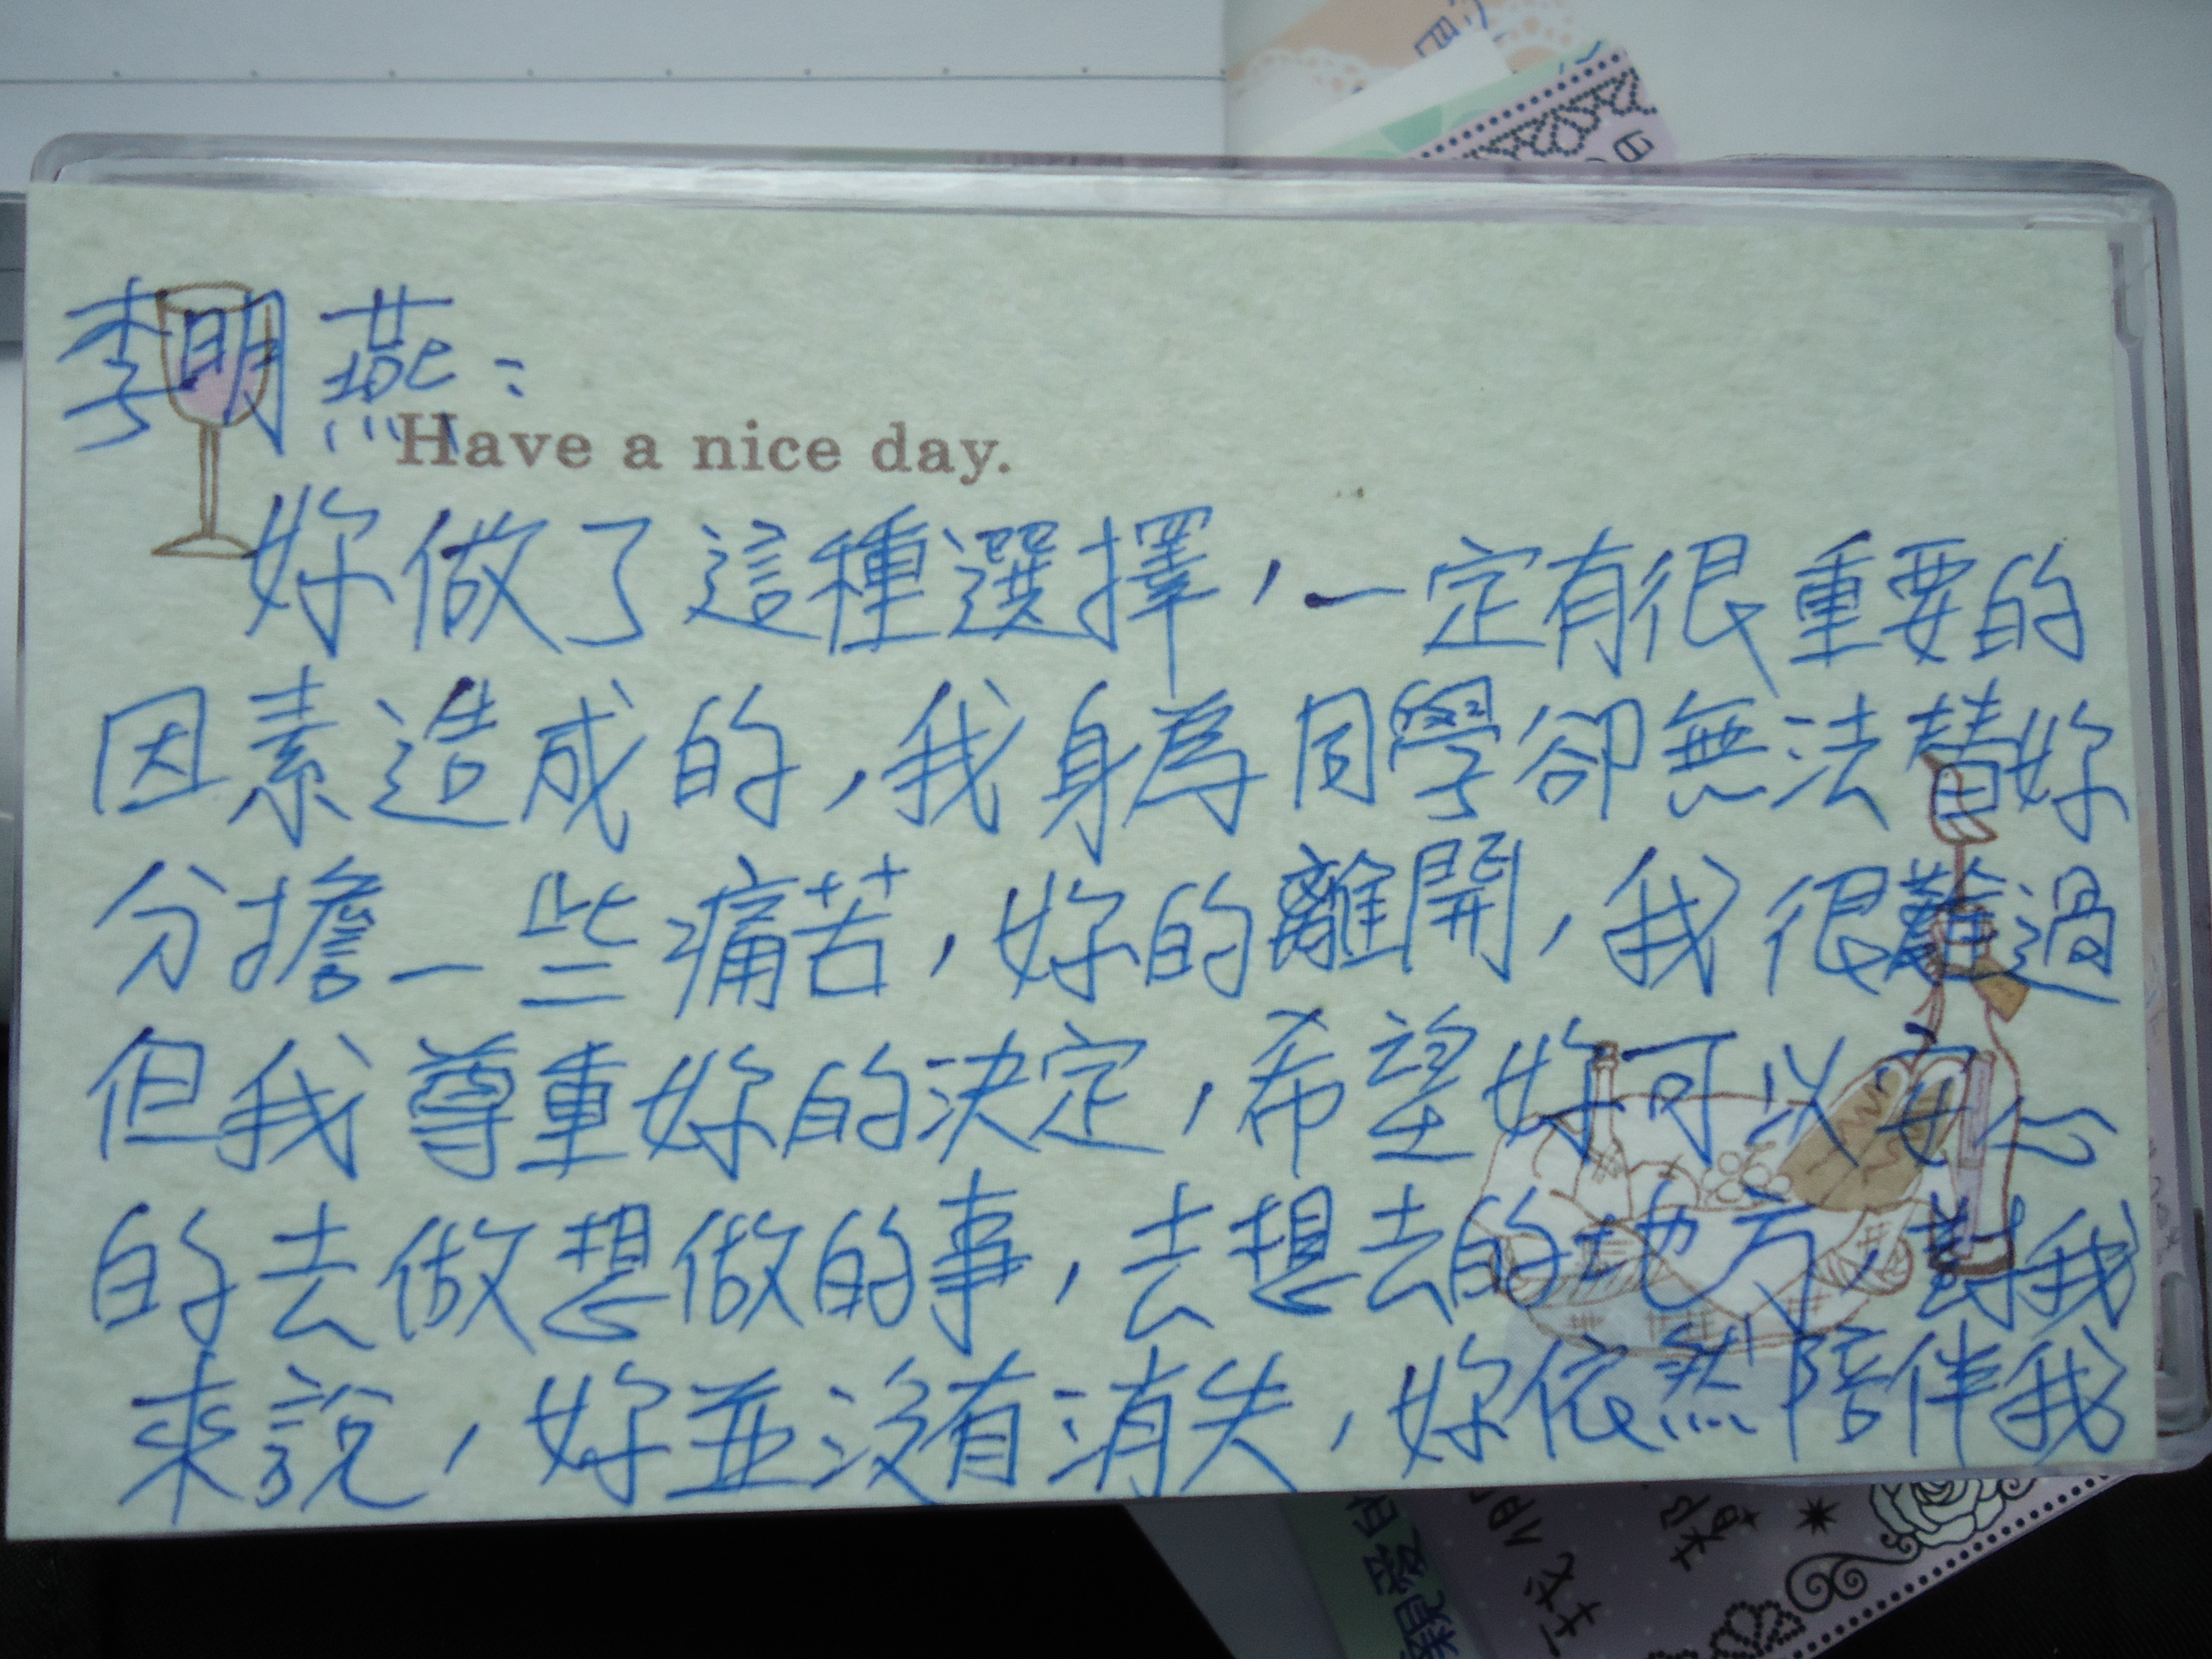 李明燕：
Have a nice day.
妳做了這種選擇，一定有很重要的
因素造成的，我身為同學卻無法替妳
分擔一些痛苦，妳的離開，我很難過
但我尊重妳的決定，希望妳可以安心
的去做想做的事，去想去的地方，對我
來說，妳並沒有消失，妳依然陪伴我
親愛的